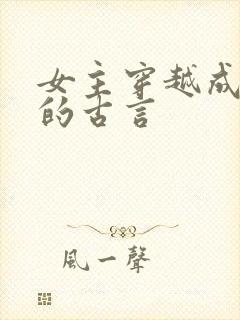 女主穿越成
的古言
風一聲